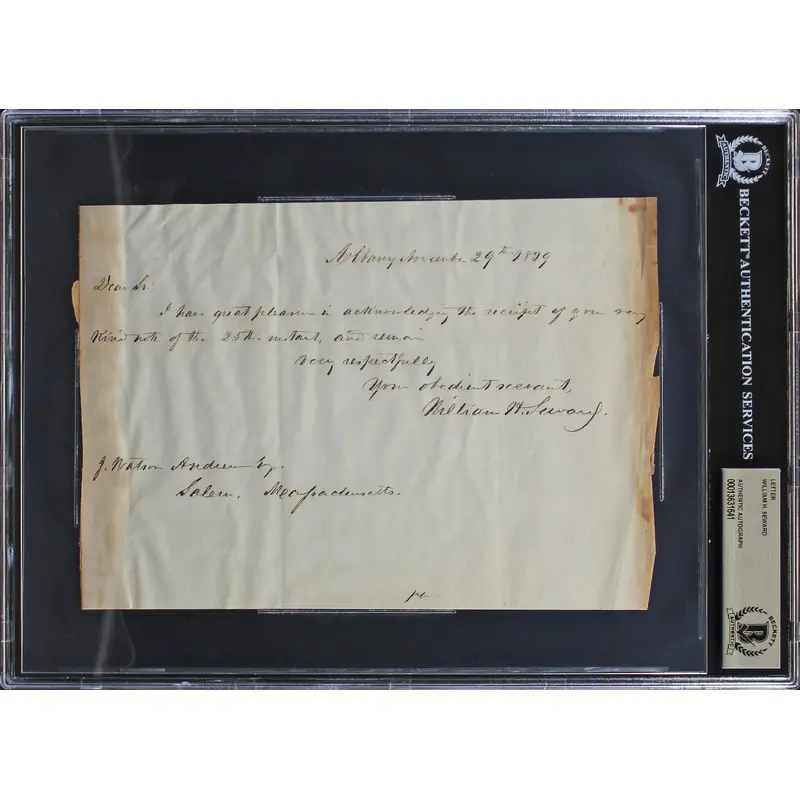 Albany November 29th 1839
Dear Sir
I have great pleasure in acknowledging the receipt of your very
kind note of the 25th. instant, and remain
very respectfully
Your obedient servant,
William H. Seward.
J. Watson Andrew Esq.
Salem, Massachusetts.
BECKETT AUTHENTICATION SERVICES
BECKETT
AUTHENTIC
B
LETTER
WILLIAM H. SEWARD
AUTHENTIC AUTOGRAPH
00013631641
BECKETT
AUTHENTIC
B